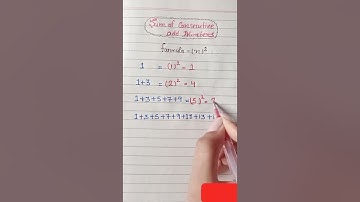 Sum of Consecutive
odd Numbers
formula = (n)²
1 = (1)² = 1
1+3 = (2)² = 4
1+3+5+7+9 = (5)² = 2
1+3+5+7+9+11+13+1